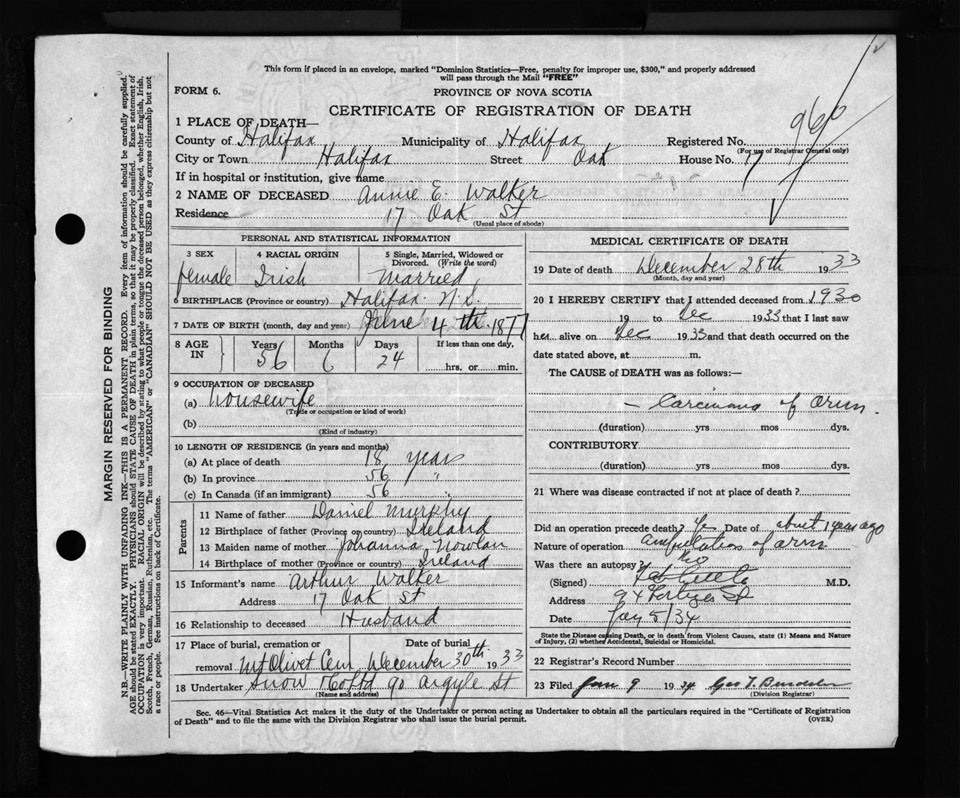 This form if placed in an envelope, marked "Dominion Statistics—Free, penalty for improper use, $300," and properly addressed
will pass through the Mail "FREE"
FORM 6.
PROVINCE OF NOVA SCOTIA
CERTIFICATE OF REGISTRATION OF DEATH
1 PLACE OF DEATH—
County of Halifax Municipality of Halifax Registered No.
(For use of Registrar General only)
City or Town Halifax Street Oak House No. 17
If in hospital or institution, give name
2 NAME OF DECEASED Annie E. Walker
Residence 17 Oak St
(Usual place of abode)
PERSONAL AND STATISTICAL INFORMATION
3 SEX 4 RACIAL ORIGIN 5 Single, Married, Widowed or Divorced. (Write the word)
female Irish Married
6 BIRTHPLACE (Province or country) Halifax N.S.
7 DATE OF BIRTH (month, day and year) June 4th 1877
8 AGE IN Years Months Days If less than one day,
56 6 24 hrs. or min.
9 OCCUPATION OF DECEASED
(a) housewife
(Trade or occupation or kind of work)
(b)
(Kind of industry)
10 LENGTH OF RESIDENCE (in years and months)
(a) At place of death 18 years
(b) In province 56 "
(c) In Canada (if an immigrant) 56 "
Parents
11 Name of father Daniel Murphy
12 Birthplace of father (Province or country) Ireland
13 Maiden name of mother Johanna Nowlan
14 Birthplace of mother (Province or country) Ireland
15 Informant's name Arthur Walker
Address 17 Oak St
16 Relationship to deceased Husband
17 Place of burial, cremation or Date of burial
removal Mt Olivet Cem December 30th 1933
18 Undertaker Snow & Co Ltd 90 Argyle St
(Name and address)
MEDICAL CERTIFICATE OF DEATH
19 Date of death December 28th 1933
(Month, day and year)
20 I HEREBY CERTIFY that I attended deceased from 1930
19 to Dec 1933 that I last saw
her alive on Dec 1933 and that death occurred on the
date stated above, at m.
The CAUSE OF DEATH was as follows:—
— Carcinoma of arm.
(duration) yrs mos dys.
CONTRIBUTORY
(duration) yrs mos dys.
21 Where was disease contracted if not at place of death?
Did an operation precede death? Yes Date of about 1 years ago
Nature of operation amputation of arm
Was there an autopsy? no
(Signed) M.D.
Address 94 St
Date Jan 5/34
State the Disease causing Death, or in death from Violent Causes, state (1) Means and Nature
of Injury, (2) whether Accidental, Suicidal or Homicidal.
22 Registrar's Record Number
23 Filed Jan 9 1934 Geo T.
(Division Registrar)
Sec. 46—Vital Statistics Act makes it the duty of the Undertaker or person acting as Undertaker to obtain all the particulars required in the "Certificate of Registration
of Death" and to file the same with the Division Registrar who shall issue the burial permit.
(OVER)
MARGIN RESERVED FOR BINDING
N.B.—WRITE PLAINLY WITH UNFADING INK—THIS IS A PERMANENT RECORD. Every item of information should be carefully supplied.
AGE should be stated EXACTLY. PHYSICIANS should STATE CAUSE OF DEATH in plain terms, so that it may be properly classified. Exact statement of
OCCUPATION is very important. RACIAL ORIGIN will be described by stating to what people or tongue the deceased person belonged, whether English, Irish,
Scotch, French, German, Russian, Ruthenian, etc. The terms "AMERICAN" or "CANADIAN" SHOULD NOT BE USED as they express citizenship but not
a race or people. See instructions on back of Certificate.